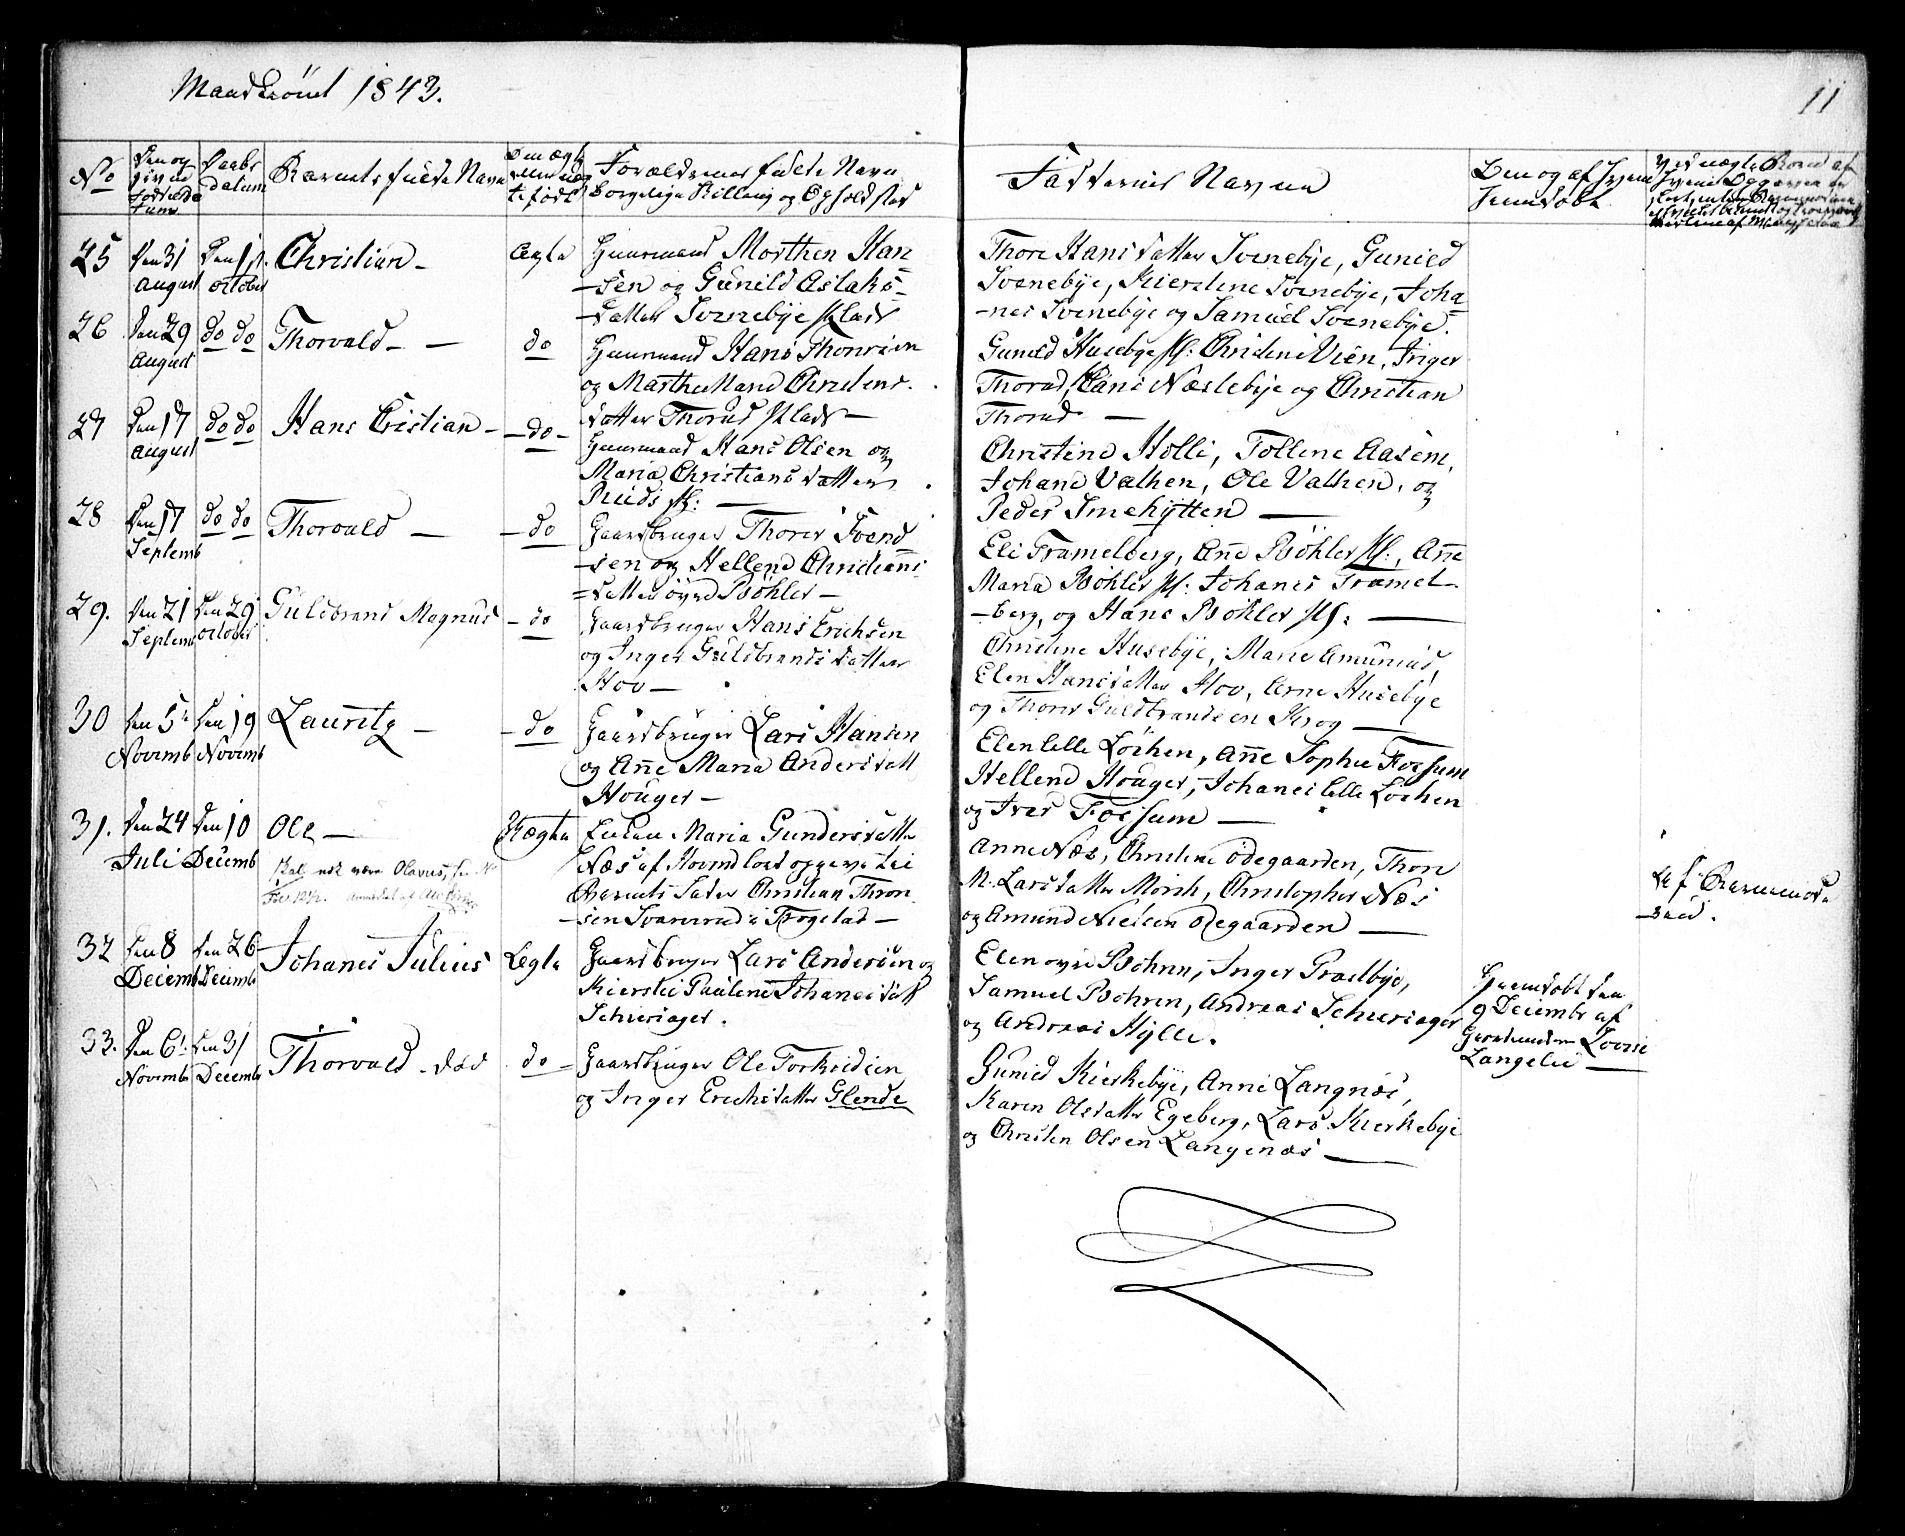 Mandkiönet 1843.
11
No
Den og
given
Fødselsda
tum
Daabs
datum
Barnets fulde Navn
Om ægte
eller uæg
te født
Forældrenes fulde Navn
borgelige Stilling og Opholdsted
Faddernes Navne
Om og af hvem
hjemdøbt
25
den 31
August
den 1st
October
Christian -
Ægte
Huusmand Morthen Han
-sen og Gunild Aslaks-
-datter Svenebye Plads
Thore Hansdatter Svenebye, Gunild
Svenebye, Kierstine Svenebye, Joha
-nes Svenebye og Samuel Svenebye.
26
den 29
August
do do
Thorvald - -
do
Huusmand Hans Thoresen
og Marthe Maria Christens
datter Thorud Plads -
Gunild Husebye Pl: Christine Vien, Inger
Thorud, Hans Næslebye og Christian
Thorud -
27
den 17
August
do do
Hans Cristian -
- do -
Huusmand Hans Olsen og
Maria Christiansdatter
Ruds Pl: -
Christine Holli, Tolline Aasene,
Johane Valhen, Ole Valhen, og
Peder Smehytten -
28
den 17
Septemb
do do
Thorvald -
- do
Gaardbruger Thorer Svend
-sen og Hellene Christians
-datter övre Böhler -
Eli Tramelberg, Añe Böhler Pl:, Añe
Maria Böhler Pl: Johanes Tramel-
-berg, og Hans Böhler Pl: -
29.
den 21
Septemb
den 29
October
Guldbrand Magnus
- do
Gaardbruger Hans Erichsen
og Inger Guldbrandsdatter
Hov -
Christine Husebye, Marie Amunrud,
Elen Hansdatter Hov, Arne Husebye
og Thorer Guldbrandsen Krog -
30
den 5te
Novemb
den 19
Novemb
Lauritz -
- do
Gaardbruger Lars Hansen
og Añe Maria Andersdatt
Houger -
Elen Lille Löchen, Añe Sophie Fossum
Hellene Houger, Johanes Lille Löchen
og Iver Fossum -
31.
den 24
Juli
den 10
Decemb
Ole -
skal nok være Olavus, se No
Uægte
Maria Gundersdatter
Næs af Hovind har opgivet til
Barnets Fader Christian Thron
-sen Svarverud i Trøgstad -
Anne Næs, Christine Ödegaarden, Thore
M. Larsdatter Mörch, Christopher Næs
og Amund Nielsen Ödegaarden -
af Barnemod
32
den 8
Decemb
den 26
Decemb
Johanes Julius
Ægte
Gaardbruger Lars Andersen og
Kiersti Pauline Johanesdatt
Schieriager.
Elen övre Bohren, Inger Præstbye,
Samuel Bohren, Andreas Schieriager
og Andreas Hylle.
Hjemdöbt den
9 Decembr af
Lovise
Langelie -
33.
den 6te
Novemb
den 31
Decemb
Thorvald - död
do -
Gaardbruger Ole Torkildsen
og Inger Erichsdatter Glende
Gunild Kierkebye, Anne Langnæs,
Karen Olsdatter Egeberg, Lars Kierkebye
og Christen Olsen Langenæs -